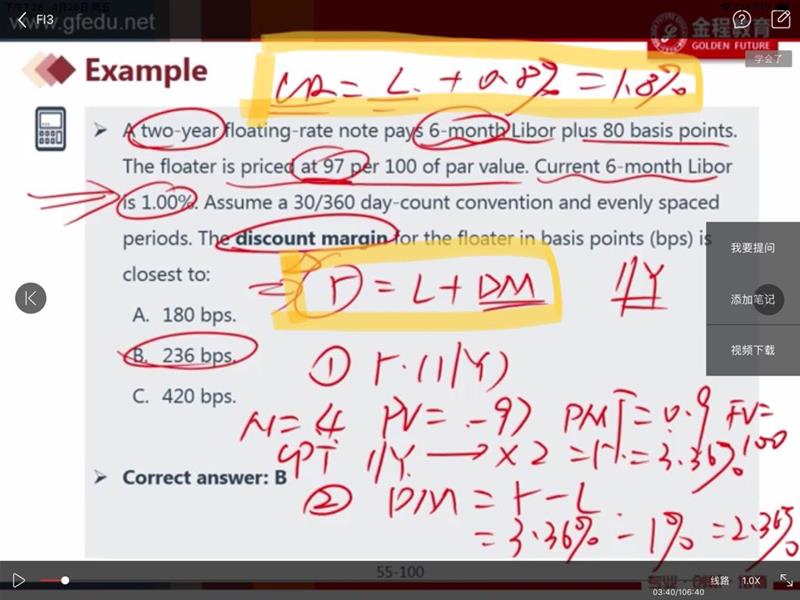 下午7:26 4月26日 周五
FI3
www.gfedu.net
金程教育
GOLDEN FUTURE
学会了
Example
CR = L + 0.8% = 1.8%
➤ A two-year floating-rate note pays 6-month Libor plus 80 basis points.
The floater is priced at 97 per 100 of par value. Current 6-month Libor
is 1.00%. Assume a 30/360 day-count convention and evenly spaced
periods. The discount margin for the floater in basis points (bps) is
closest to:
我要提问
添加笔记
视频下载
r = L + DM
I/Y
A. 180 bps.
B. 236 bps.
C. 420 bps.
① r. (I/Y)
N = 4 PV = -97 PMT = 0.9 FV = 100
CPT I/Y → × 2 = r = 3.36%
➤ Correct answer: B
② DM = r - L
= 3.36% - 1% = 2.36%
55-100
线路
1.0X
03:40/106:40